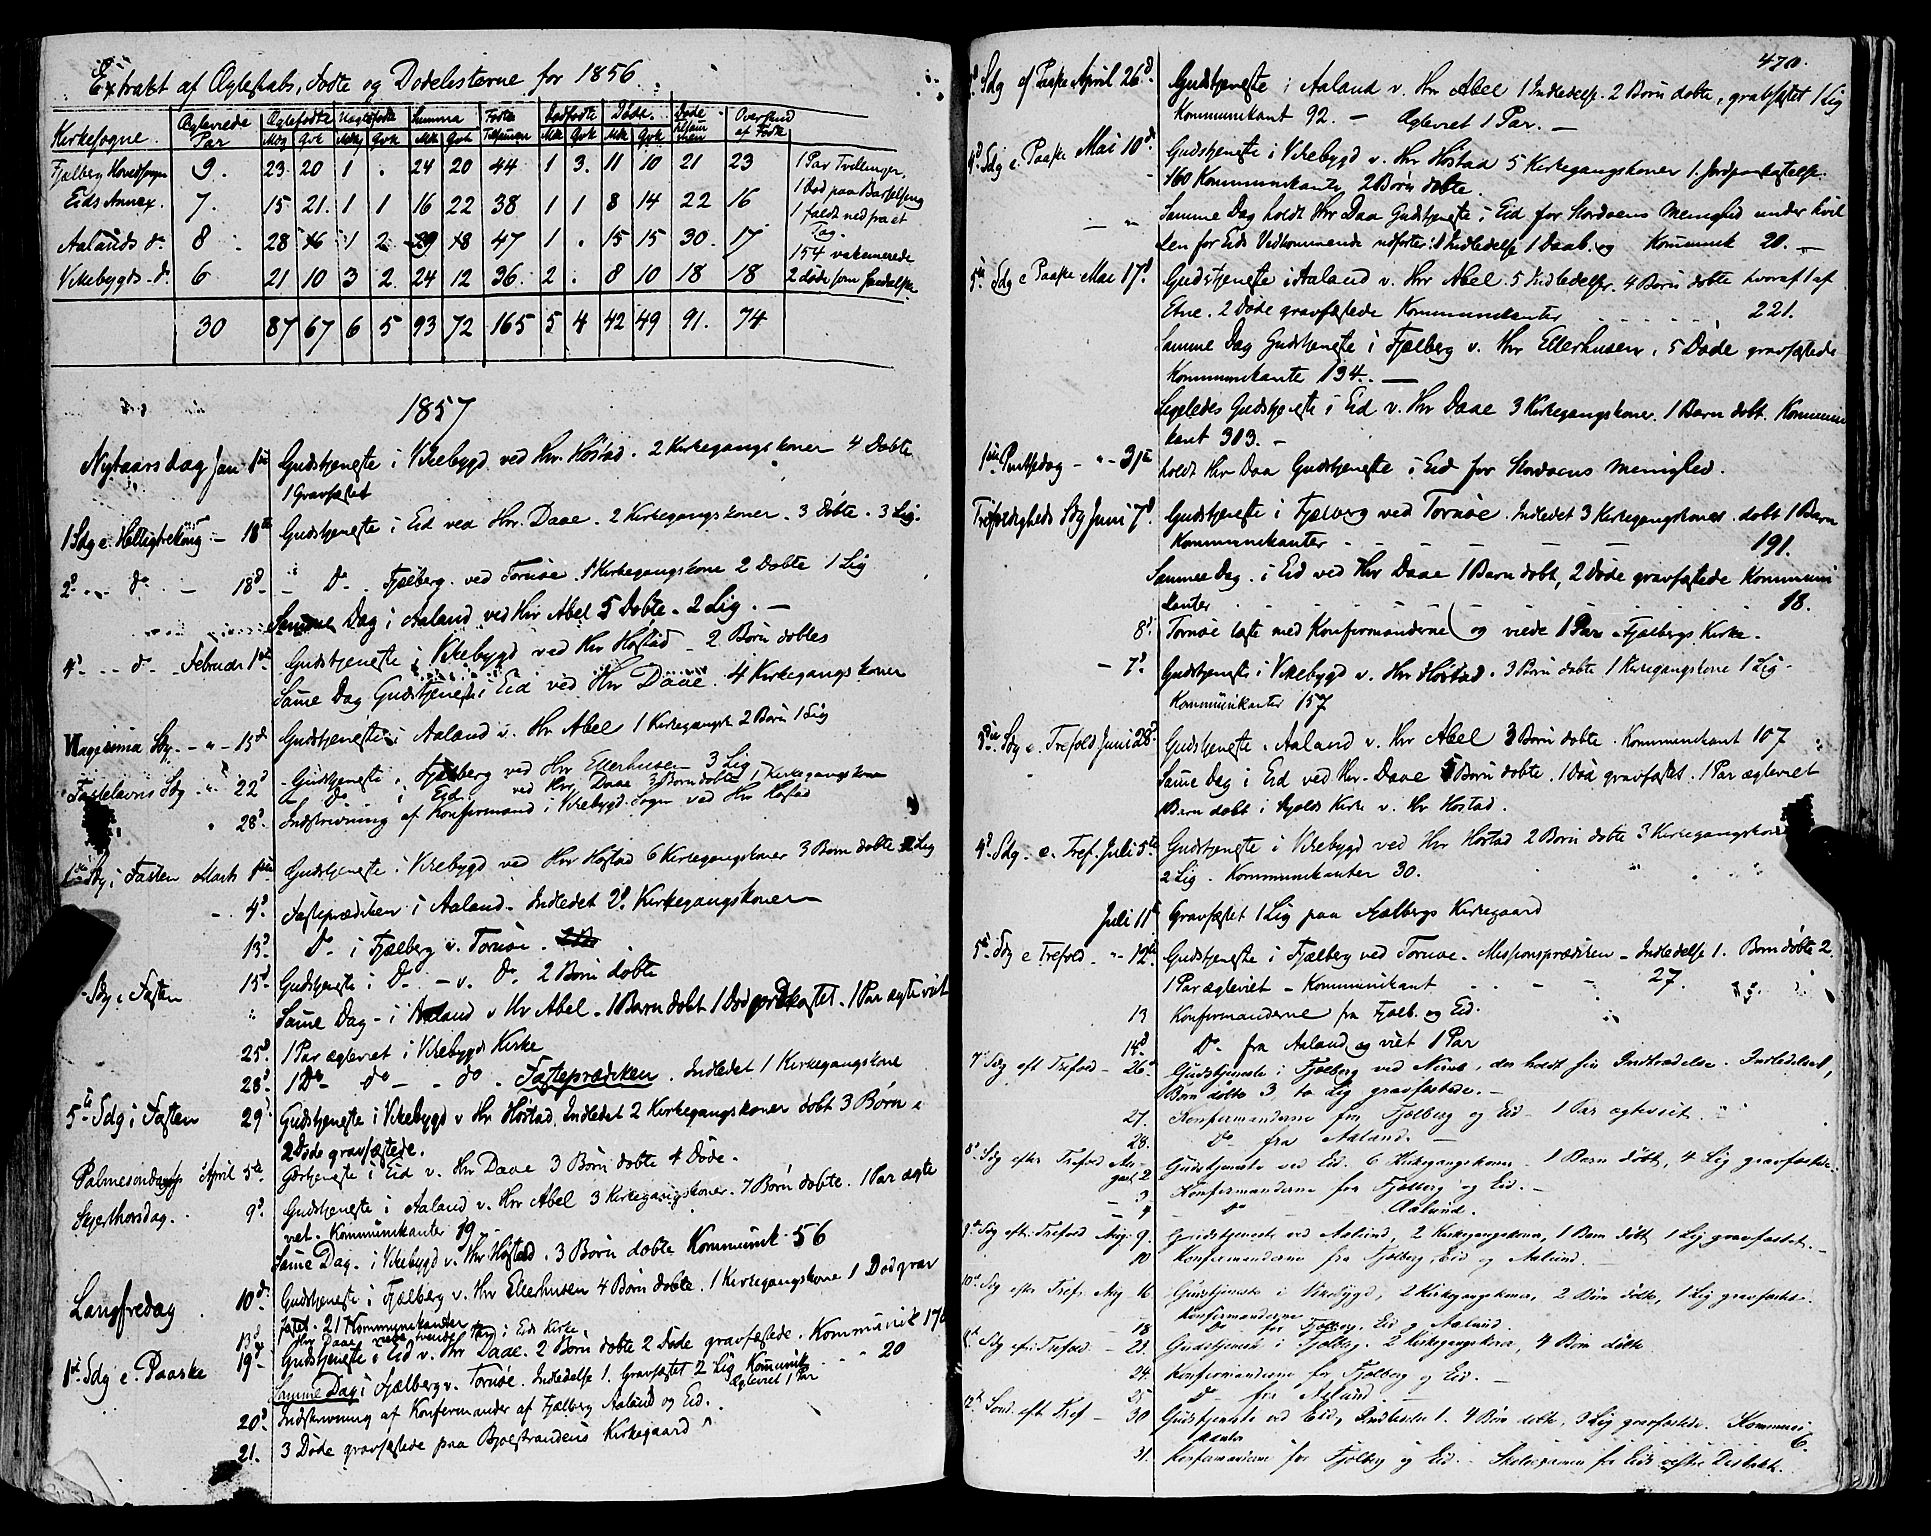 Extrakt af Ægteskabs, Fødte og Dødelisterne for 1856
Kirkesogne. Ægteviede Par Ægtefødte Uægtefødte Summa Fødte Tilsammen Dødfødte Døde. Døde Overskud af Fødte
Mk Qvk Mk Qvk Mk Qvk Mk Qvk Mk Qvk
Fjælberg Hovedsogn 9. 23 20 1 . 24 20 44 1 3. 11 10 21 23 1 Par Tvillinger,
Eids Annex. 7. 15 21. 1 1 16 22 38 1 1 8 14 22 16 1 død paa Barselseng
1 faldt ned fra et
Aalands do 8 28 16 1 2 29 18 47 1 . 15 15 30. 17 Tag.
154 vakcinerede
Vikebygds do 6 21 10 3 2. 24 12 36. 2 . 8 10 18 18 2 døde som
30 87 67 6 5 93 72 165 5 4 42 49 91. 74
1857
Nytaarsdag Jan 1ste Gudstjeneste i Vikebygd ved Hr. Høstad. 2 Kirkegangskoner 4 Døbte
1 Gravfæstet
1 Sdg e. Helligtrekong - 10de Gudstjeneste i Eid ved Hr. Daae. 2 Kirkegangskoner. 3 Døbte. 3 Lig.
2d - do - 18d - Do Fjælberg. ved Tornøe. 1 Kirkegangskone 2 Døbte 1 Lig
Samme Dag i Aaland ved Hr Abel 5 Døbte. 2 Lig. -
4d - do - Februar 1ste Gudstjeneste i Vikebygd ved Hr Høstad - 2 Børn døbtes
Samme Dag Gudstjeneste i Eid ved Hr Daae. 4 Kirkegangskoner
Sdg. - " - 15d Gudstjeneste i Aaland v. Hr Abel 1 Kirkegangsk 2 Børn 1 Lig
Fastelavns Sdg - " 22d Gudstjeneste i Fjælberg ved Hr Ellerhusen 3 Lig
- Do i Eid ved Hr. Daae 3 Børn døbte 1 Kirkegangskone
" 28d. Indskrivning af Konfirmand i Vikebygd Sogn ved Hr Høstad
1ste Sdg i Fasten Marts 1ste Gudstjeneste i Vikebygd ved Hr Høstad 6 Kirkegangskoner 3 Børn døbte 2 Lig
- 4d. Fasteprædiken i Aaland. Indledet 2 Kirkegangskoner
13d Do - i Fjælberg v. Tornøe.
- Sdg i Fasten 15d Gudstjeneste i Do - v. Do 2 Børn døbte
" Samme Dag - i Aaland v Hr Abel. 1 Barn døbt 1 Død jordkastet. 1 Par ægteviet
25d 1 Par ægteviet i Vikebygds Kirke
28d 1 Do - do - - do. Fasteprædiken. Indledet 1 Kirkegangskone
5te Sdg i Fasten 29d Gudstjeneste i Vikebygd v Hr Høstad. Indledet 2 Kirkegangskoner døbt 3 Børn
2 Døde gravfæstede.
Palmesøndag April 5te Gudstjeneste i Eid v. Hr Daae 3 Børn døbte 4 Døde.
Skjærthorsdag. 9d. Gudstjeneste i Aaland v. Hr Abel 3 Kirkegangskoner. 7 Børn døbte. 1 Par ægte
viet. Kommunikanter 19
Samme Dag. i Vikebygd v. Hr Høstad. 3 Børn døbte Kommunik. 56
Langfredag 10d. Gudstjeneste i Fjælberg v. Hr Ellerhusen 4 Børn døbte. 1 Kirkegangskone 1 Død grav
fæstet. 21 Kommunikanter
13d Hr Daae viede 1 Par i Eids Kirke
1ste Sdg e. Paaske 19d Gudstjeneste i Eid v. Hr Daae. 2 Børn døbte 2 Døde gravfæstede. Kommunik 170
Samme Dag i Fjælberg v. Tornøe. Indledelse 1. Gravfæstet 2 Lig Kommunik " 20
ægteviet 1 Par
20d Indskrivning af Konfirmander af Fjælberg Aaland og Eid.
21. 3 Døde gravfæstede paa Bjoestrandens Kirkegaard
470.
Sdg ef Paaske April 26d. Gudstjeneste i Aaland v. Hr Abel 1 Indledelse. 2 Børn døbte, gravfæstet 1 Lig
Kommunikant 92. - Ægteviet 1 Par. -
4d Sdg e. Paaske Mai 10d. Gudstjeneste i Vikebygd v. Hr Høstad 5 Kirkegangskoner 1. Jordpaakastelse.
160 Kommunikanter, 2 Børn døbte.
- " Samme Dag holdt Hr Daa Gudstjeneste i Eid for Stordøens Menighed under hvil
ken for Eids Vedkommende udførtes: 1 Indledelse 1 Daab. og Kommunik 20. -
5te Sdg e Paaske Mai 17d Gudstjeneste i Aaland v. Hr Abel. 5 Indledelser. 4 Børn døbte hvoraf 1 af
Etne. 2 Døde gravfæstede Kommunikanter 221.
Samme Dag Gudstjeneste i Fjælberg v. Hr Ellerhusen. 5 Døde gravfæstede
Kommunikanter 134. -
Ligeledes Gudstjeneste i Eid v. Hr Daae 3 Kirkegangskoner. 1 Barn døbt. Kommuni
kant 303. -
1ste Pintsedag - " - 31te holdt Hr Daa Gudstjeneste i Eid for Stordøens Menighed.
Trefoldigheds Sdg Juni 7d. Gudstjeneste i Fjælberg ved Tornøe. Indledet 3 Kirkegangskoner. døbt 1 Barn
Kommunikanter - - - - 191.
Samme Dag. i Eid ved Hr Daae 1 Barn døbt, 2 Døde gravfæstede Kommuni
kanter 18.
8d. Tornøe læste med Konfirmanderne og viede 1 Par i Fjælbergs Kirke.
- 7d. Gudstjeneste i Vikebygd v. Hr Høstad. 3 Børn døbte 1 Kirkegangskone 1 Lig
Kommunikanter 157
3die Sdg e. Trefold Juni 28d Gudstjeneste i Aaland v. Hr Abel 3 Børn døbte. Kommunikant 107
Samme Dag i Eid ved Hr. Daae 5 Børn døbte. 1 Død gravfæstet. 1 Par ægteviet
1 Barn døbt i Kirke v. Hr Høstad.
4d. Sdg. e. Tref. Juli 5te Gudstjeneste i Vikebygd ved Hr Høstad 2 Børn døbte 3 Kirkegangskoner
2 Lig. Kommunikanter 30.
Juli 11te Gravfæstet 1 Lig paa Fjælbergs Kirkegaard
5te Sdg e Trefold - " - 12te Gudstjeneste i Fjælberg ved Tornøe. Missionsprædiken - Indledelse 1. Børn døbte 2
1 Par ægteviet - Kommunikant 27.
13 Konfirmanderne fra Fjælb. og Eid.
14d Do - fra Aaland og viet 1 Par
7d Sdg eft Trefold - 26d Gudstjeneste i Fjælberg ved holdt sin Indtrædelse. Indledelse 1,
Børn døbte 3, to Lig gravfæstede. -
27. Konfirmanderne fra Fjælberg og Eid - 1 Par ægteviet.
28. Do fra Aaland. -
8d Sdg efter Trefold Au-
gust 2 Gudstjeneste ved Eid. 6 Kirkegangskoner 1 Barn døbt, 4 Lig gravfæstede.
- 3 Konfirmanderne fra Fjælberg og Eid. -
- 4 - Do - Aaland.
9de Sdg eft: Trefold Aug: 9. Gudstjeneste ved Aaland, 2 Kirkegangskoner, 1 Barn døbt, 1 Lig gravfæstet. -
10 Konfirmanderne fra Fjælberg, Eid og Aaland. -
10de Sdg efter Tref. Aug 16 Gudstjeneste i Vikebygd, 2 Kirkegangskoner, 2 Børn døbte, 1 Lig gravfæstet.
Konfirmanderne
18 Do fra Fjælberg, Eid og Aaland.
11te Sdg eft: Trefold. - 23. Gudstjeneste i Fjælberg. 2 Kirkegangskoner, 4 Børn døbte
24. Konfirmanderne fra Fjelberg og Eid. -
25 Do - fra Aaland. -
12te Sønd. eft. Tref - 30 Gudstjeneste ved Eid, Indledelse 1. 4 Børn døbte, 3 Lig gravfæstede. Kommuni
kanter 6.
31. Konfirmanderne fra Fjelberg og Eid.